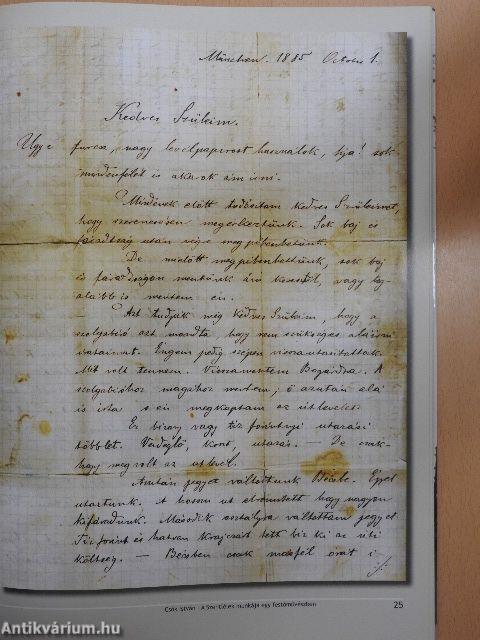 München. 1885 October 1.
Kedves Szüleim.
Ugy-e furcsa, nagy levelpapirost használok, hja! sok
mindenfélét is akarok ám irni.
Mindenek előtt tudatom kedves Szüleimet,
hogy szerencsésen megérkeztünk. Sok baj és
fáradtság után végre megpihenhetünk.
De mielőtt megpihenhettünk, sok baj
és fáradságon mentünk ám keresztül, vagy leg
alább is mentem én.
– Azt tudják még kedves Szüleim, hogy a
szolgabíró azt mondta hogy nem szükséges aláirni
irataimat. Engem pedig szépen visszautasitottak.
Mit volt tennem. Visszamentem Bogárdra. A
szolgabíróhoz magához mentem; ő azután alá
is irta s én megkaptam az útlevelet.
Ez bizony vagy tiz forintnyi utazási
többlet. Vendéglő, koszt, utazás. – De csak-
hogy meg volt az útlevél.
Azután jegyet váltottunk Bécsbe. Éjjel
utaztunk. A hosszu ut elrémitett hogy nagyon
kifáradunk. Második osztályra váltottam jegyet
Tiz forint és hatvan krajczárt tett biz ki az úti
költség. – Bécsben csak másfél órát i-
Csók István: A Szentlélek munkája egy festőművészben
25
Antikvárium.hu